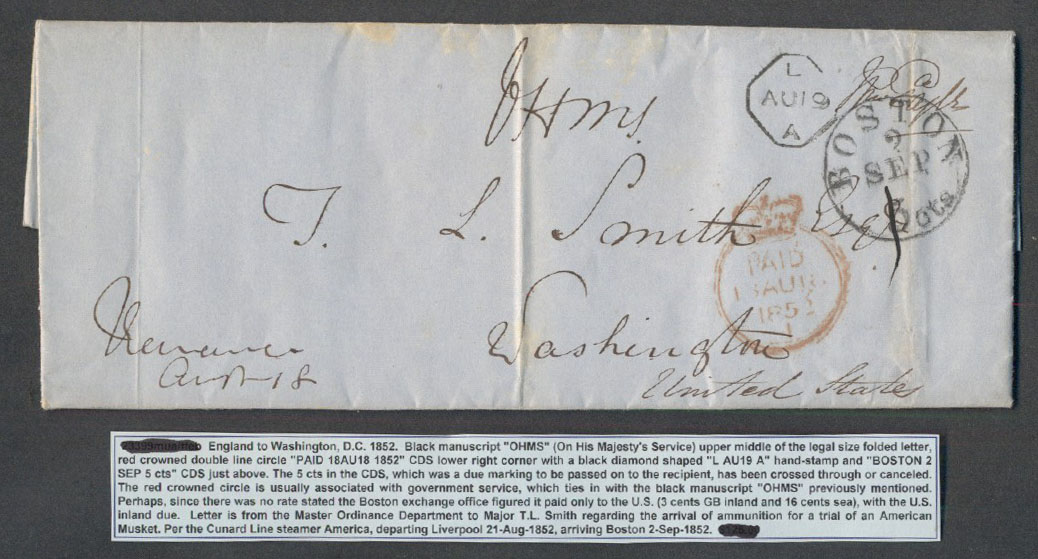 OHMS.
L
AU19
A
BOSTON
2
SEP
5 cts
T. L. Smith Esqr
PAID
18AU18
1852
Washington
United States
18
England to Washington, D.C. 1852. Black manuscript "OHMS" (On His Majesty's Service) upper middle of the legal size folded letter,
red crowned double line circle "PAID 18AU18 1852" CDS lower right corner with a black diamond shaped "L AU19 A" hand-stamp and "BOSTON 2
SEP 5 cts" CDS just above. The 5 cts in the CDS, which was a due marking to be passed on to the recipient, has been crossed through or canceled.
The red crowned circle is usually associated with government service, which ties in with the black manuscript "OHMS" previously mentioned.
Perhaps, since there was no rate stated the Boston exchange office figured it paid only to the U.S. (3 cents GB inland and 16 cents sea), with the U.S.
inland due. Letter is from the Master Ordinance Department to Major T.L. Smith regarding the arrival of ammunition for a trial of an American
Musket. Per the Cunard Line steamer America, departing Liverpool 21-Aug-1852, arriving Boston 2-Sep-1852.